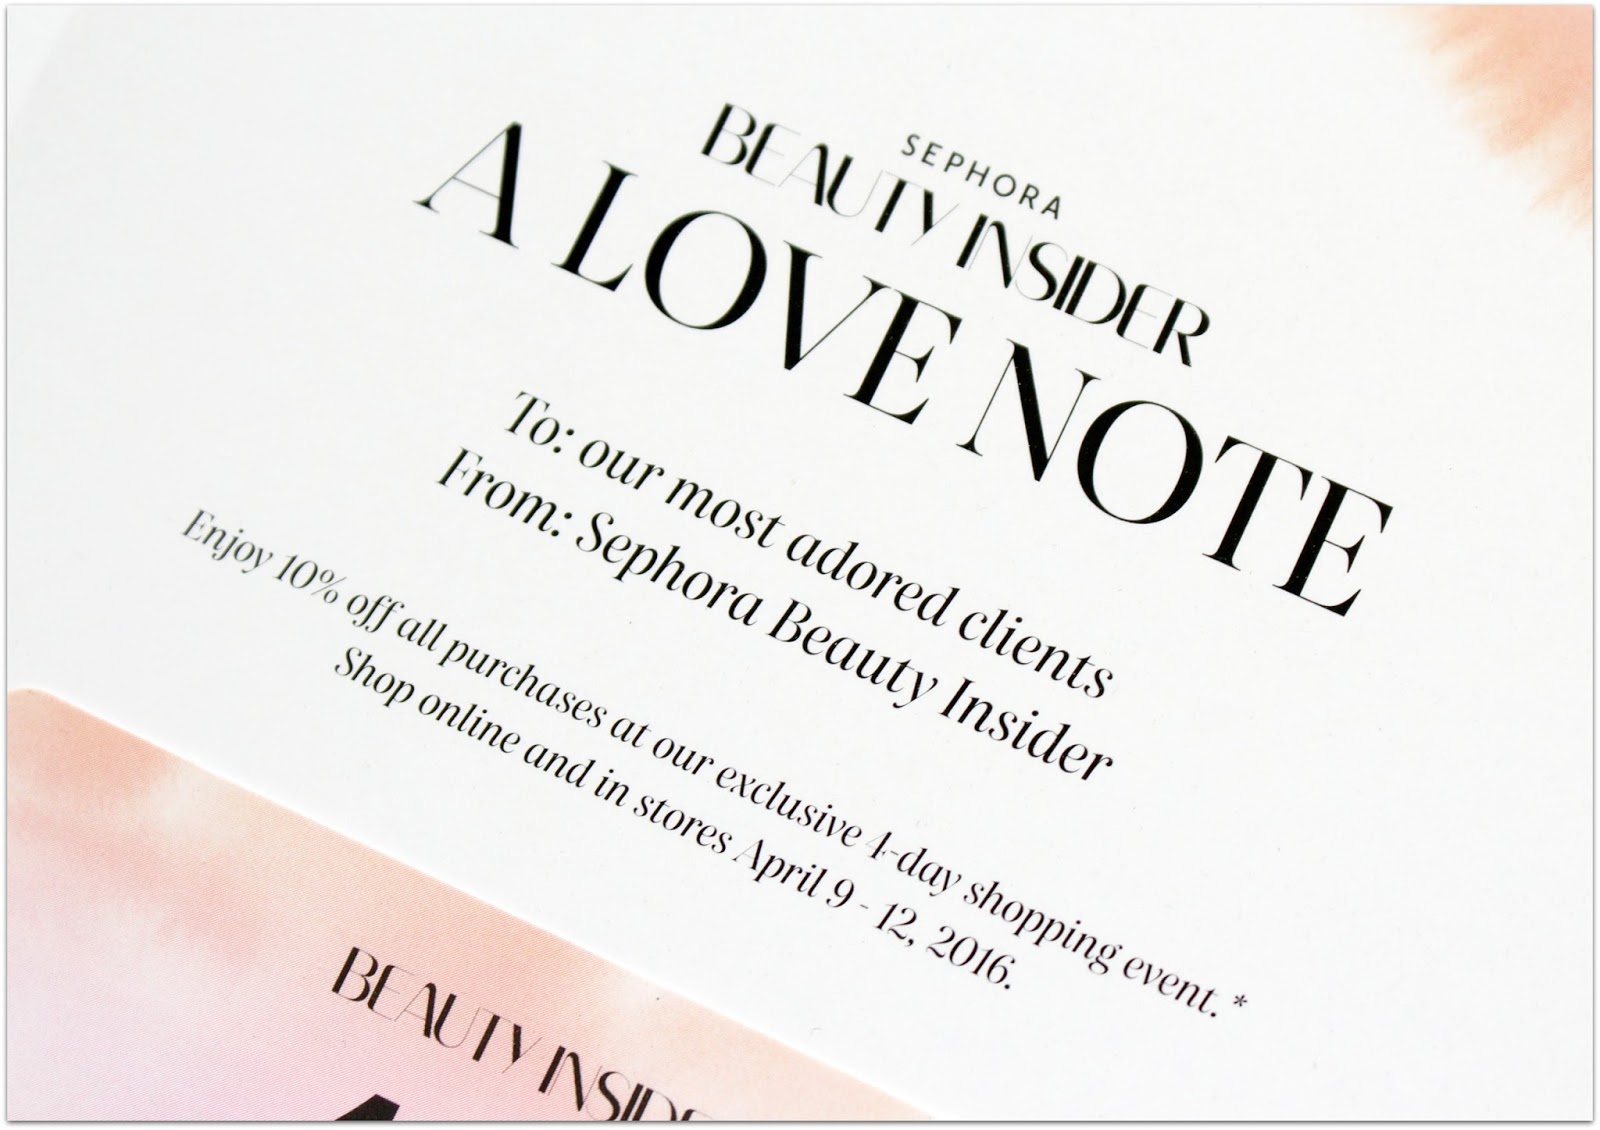 SEPHORA
BEAUTY INSIDER
A LOVE NOTE
To: our most adored clients
From: Sephora Beauty Insider
Enjoy 10% off all purchases at our exclusive 4-day shopping event. *
Shop online and in stores April 9 - 12, 2016.
BEAUTY INSIDE